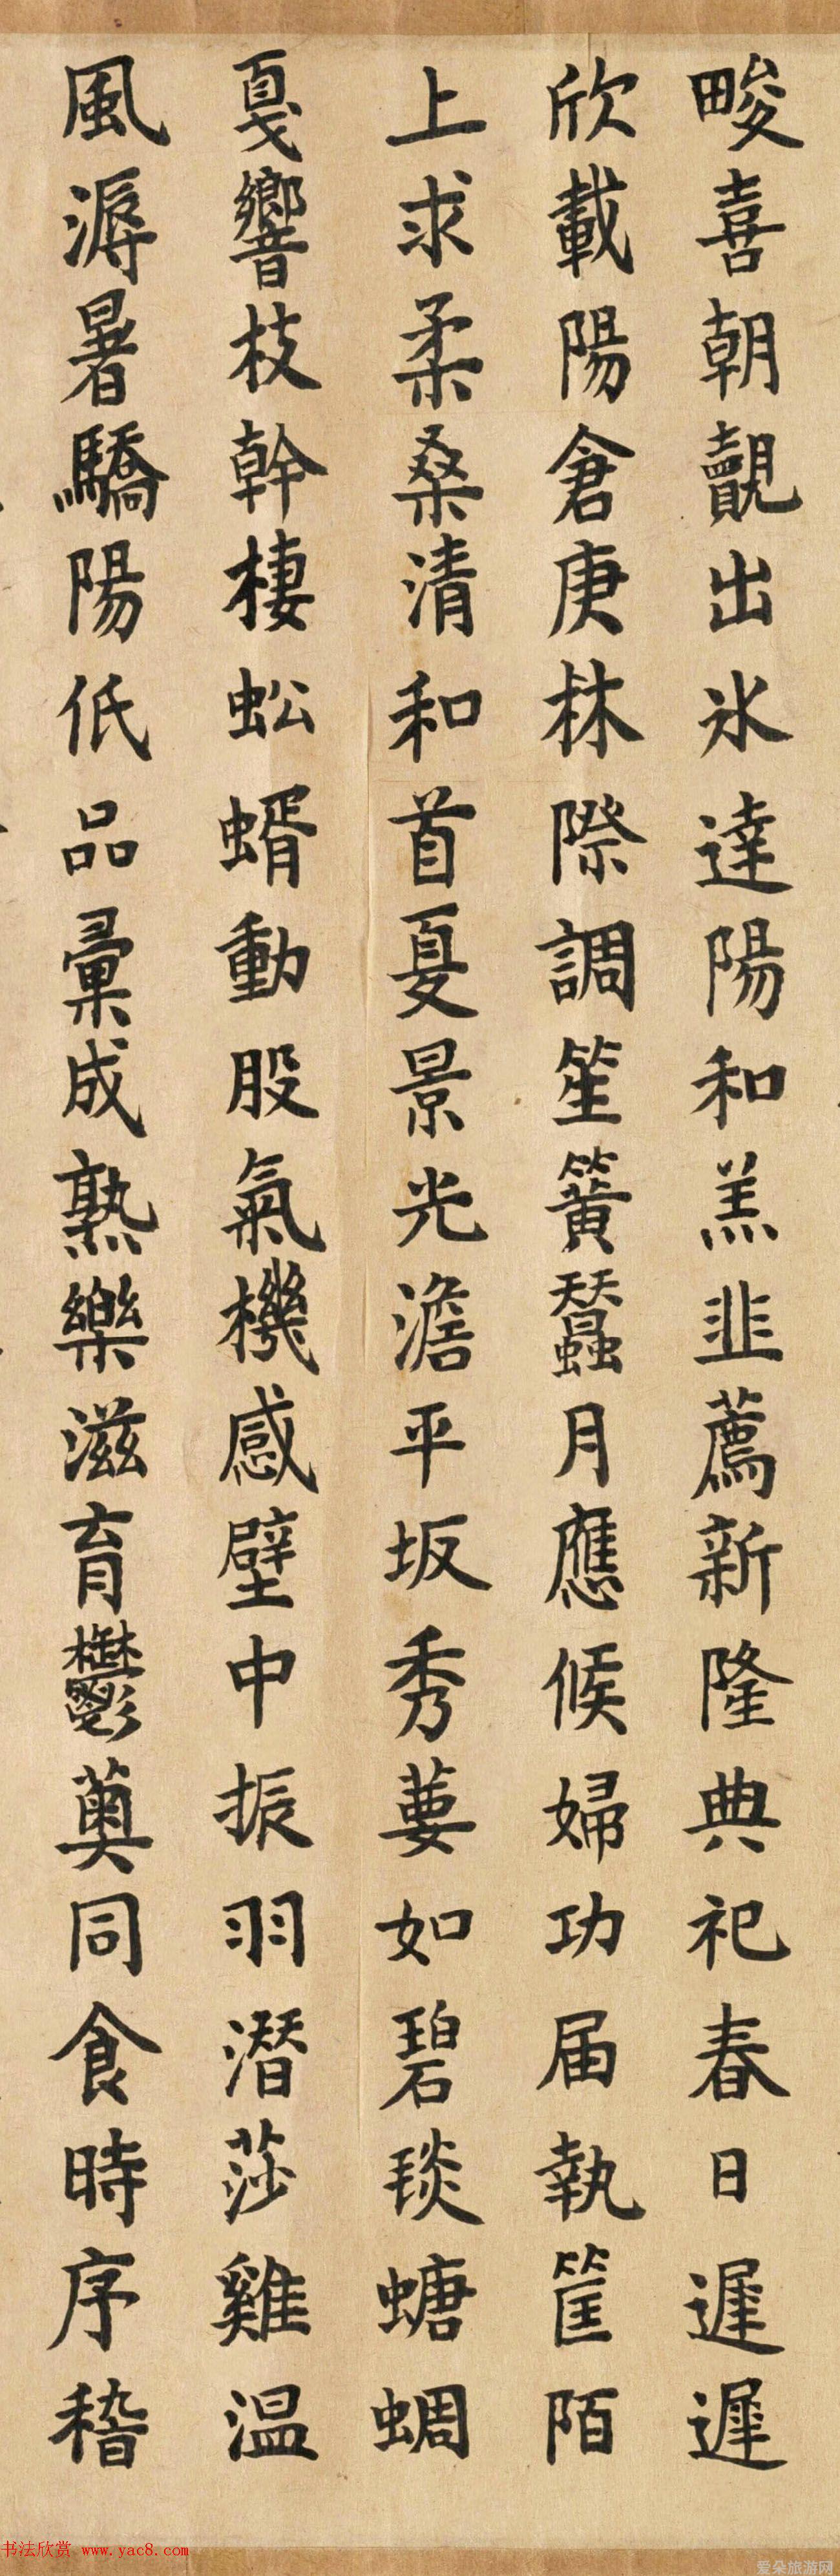 畯喜朝覿出氷達陽和羔韭薦新隆典祀春日遲遲
欣載陽倉庚林際調笙簧蠶月應候婦功届執筐陌
上求柔桑清和首夏景光澹平坂秀葽如碧琰螗蜩
戛響枝幹棲蚣蝑動股氣機感壁中振羽潛莎雞温
風溽暑驕陽低品彙成熟樂滋育鬱薁同食時序稽
书法欣赏 www.yac8.com
爱朵旅游网